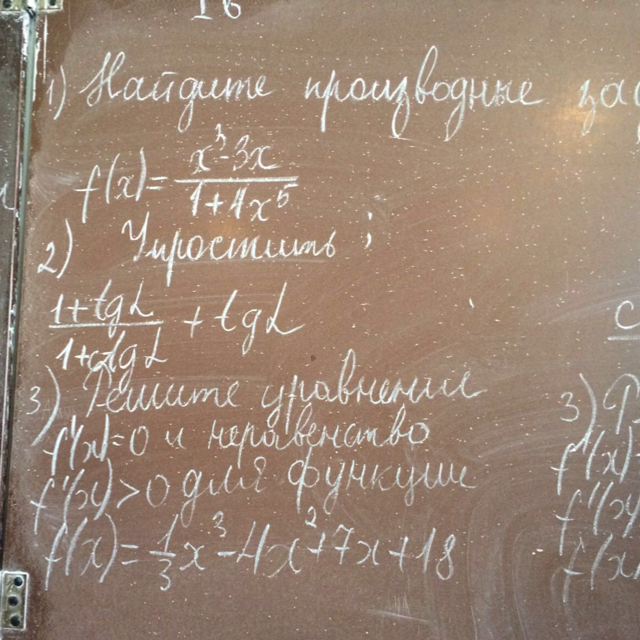 1) Найдите производные
f(x)= x³-3x / 1+4x⁵
2) Упростить ;
1+tgα / 1+ctgα + tgα
3) Решите уравнение
f'(x)=0 и неравенство
f'(x)>0 для функции
f(x)= 1/3 x³-4x²+7x+18
3)
f'(x)
f'(x)
f(x)